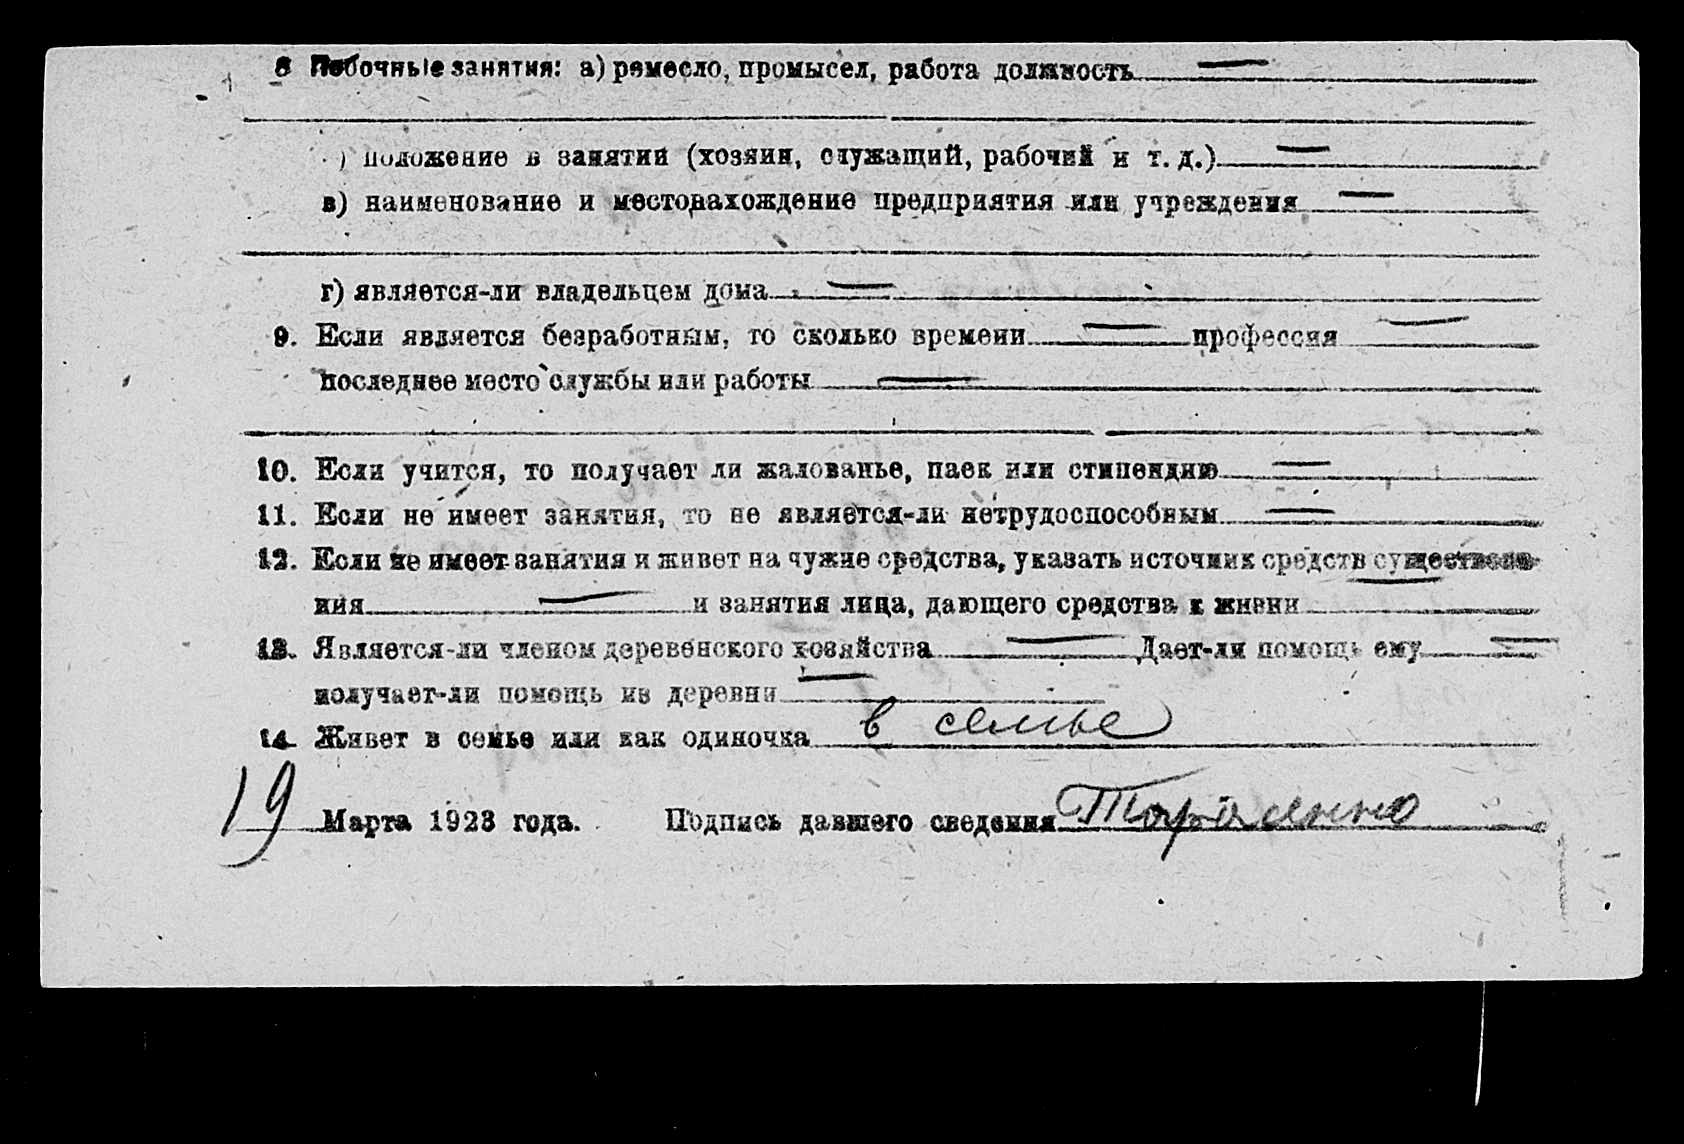 8 Побочные занятия: а) ремесло, промысел, работа должность —
) положение в занятии (хозяин, служащий, рабочий и т. д.) —
в) наименование и местонахождение предприятия или учреждения —
г) является-ли владельцем дома —
9. Если является безработным, то сколько времени — профессия —
последнее место службы или работы —
10. Если учится, то получает ли жалованье, паек или стипендию —
11. Если не имеет занятия, то не является-ли нетрудоспособным —
12. Если не имеет занятия и живет на чужие средства, указать источник средств существова-
ния — и занятия лица, дающего средства к жизни —
13. Является-ли членом деревенского хозяйства — Дает-ли помощь ему —
получает-ли помощь из деревни —
14. Живет в семье или как одиночка в семье
19 Марта 1923 года. Подпись давшего сведения